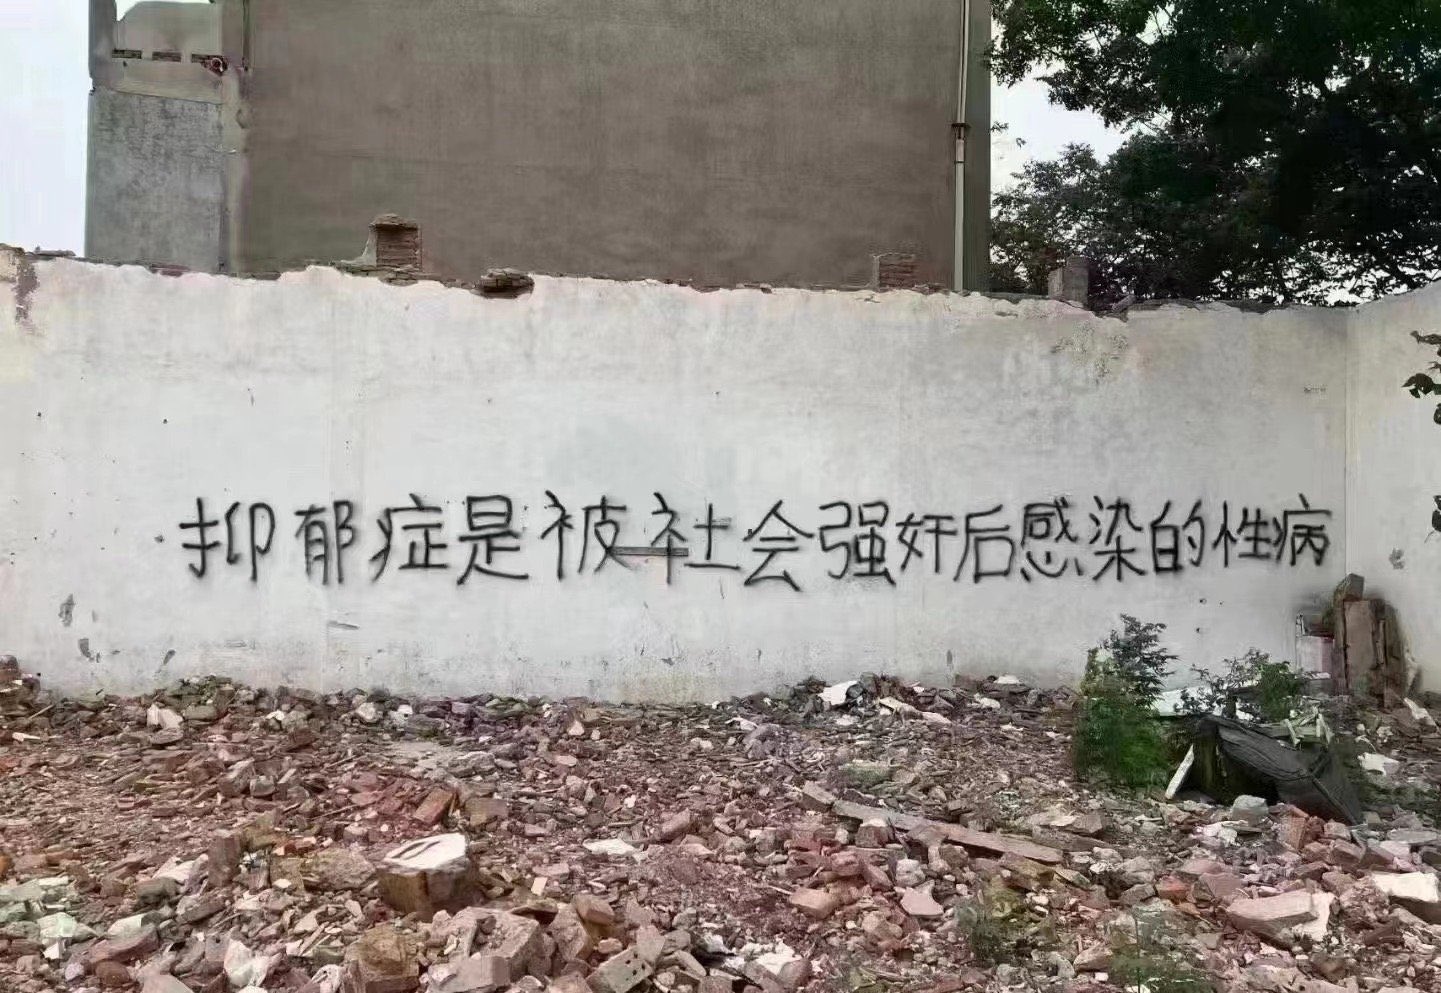 抑郁症是被社会强奸后感染的性病